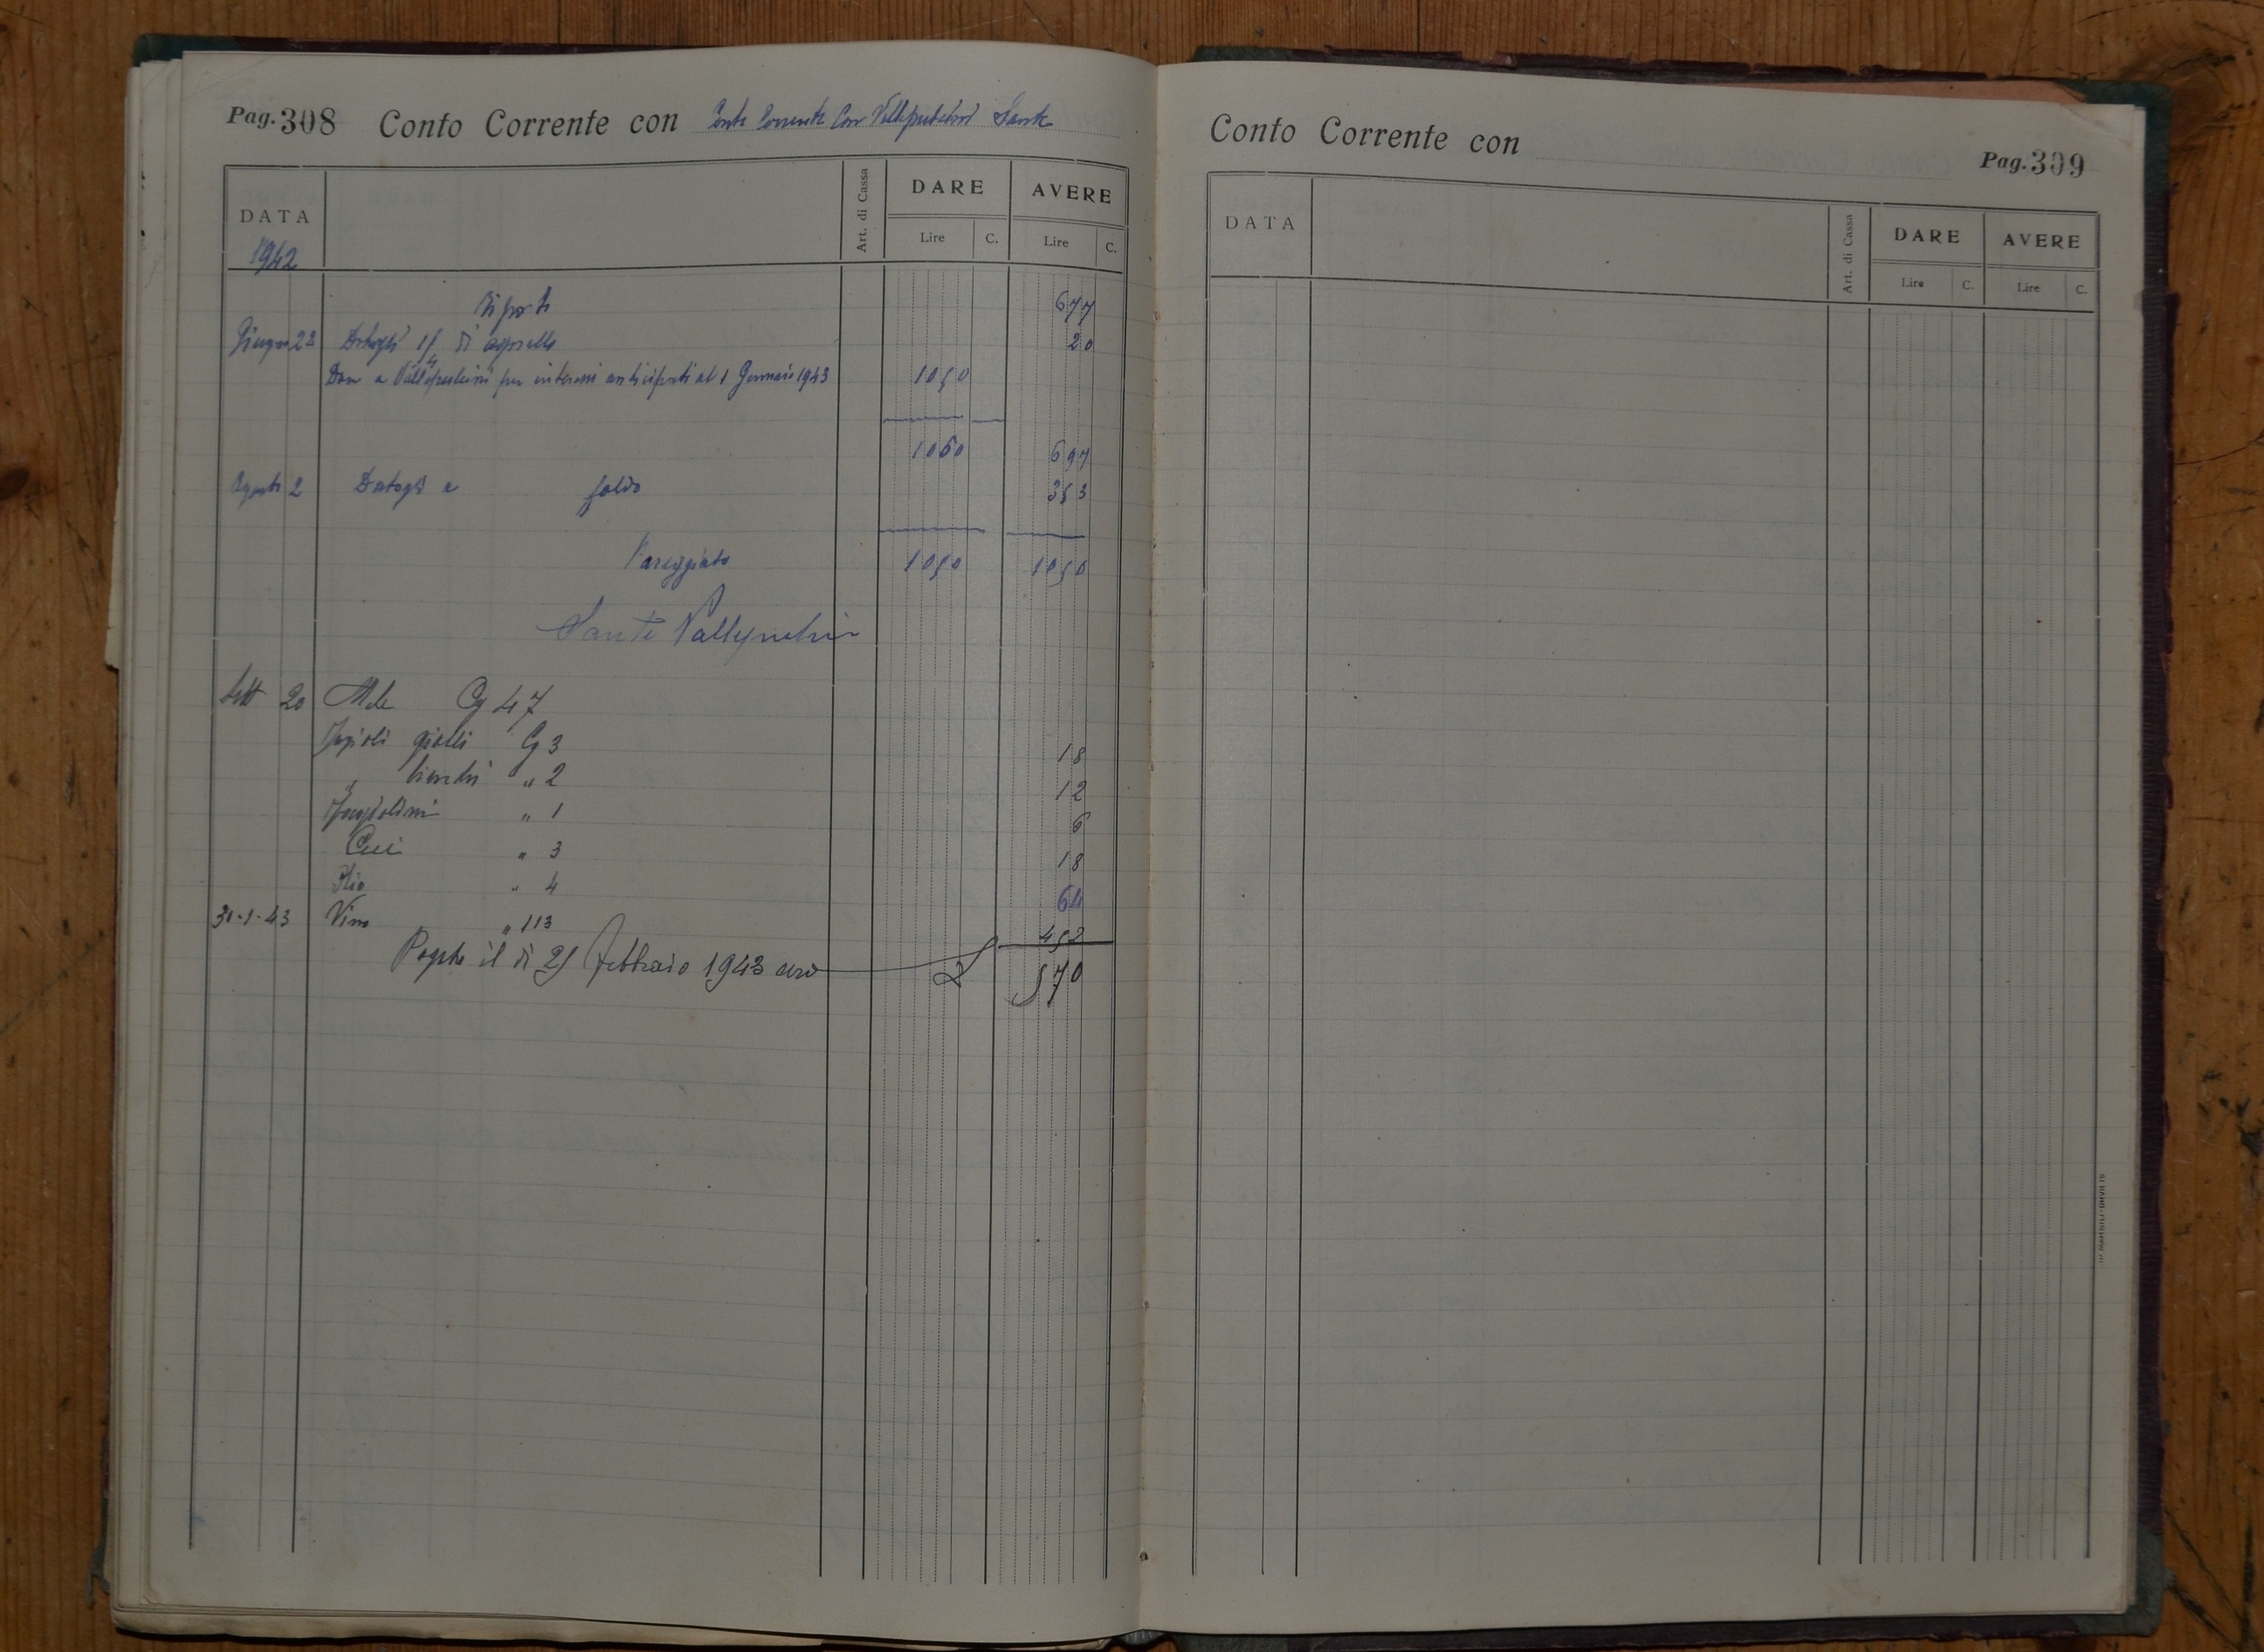 Pag. 308 Conto Corrente con Conto Corrente Con Vallepulcini Sante
DATA Art. di Cassa DARE AVERE
Lire C. Lire C.
1942
Riporto 677
Giugno 23 Datogli di 20
Dare a Vallepulcini per interessi anticipati al 1 Gennaio 1943 1050
1050 697
Agosto 2 Datogli a saldo 353
Pareggiato 1050 1050
Sante
Sett 20 Mele Cg 47
Fagioli gialli Cg 3 18
" bianchi " 2 12
Fagiolini " 1 6
Ceci " 3 18
Olio " 4 64
31-1-43 Vino " 113 452
Pagato il di 25 Febbraio 1943 570
Conto Corrente con
Pag. 309
DATA Art. di Cassa DARE AVERE
Lire C. Lire C.